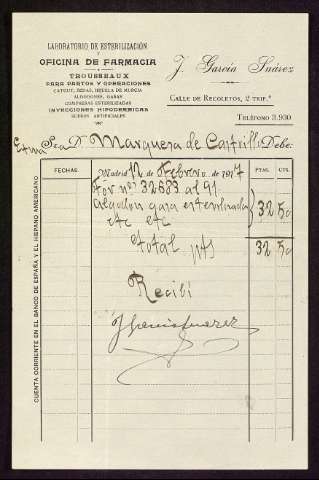 LABORATORIO DE ESTERILIZACIÓN
Y
OFICINA DE FARMACIA
TROUSSEAUX
PARA PARTOS Y OPERACIONES
CATGUT, SEDAS, HIJUELA DE MURCIA
ALGODONES, GASAS
COMPRESAS ESTERILIZADAS
INYECCIONES HIPODÉRMICAS
SUEROS ARTIFICIALES
J. García Suárez
CALLE DE RECOLETOS, 2 TRIP.º
TELÉFONO 3.930
Exma Sra Dª Marquesa de Castrillo Debe:
FECHAS
Madrid 12 de Febrero de 1917
PTAS. CTS.
Por nos 32683 al 91
algodon gasa esterilizada
etc etc 32 50
total pts 32 50
Recibí
J Garcia Suarez
CUENTA CORRIENTE EN EL BANCO DE ESPAÑA Y EL HISPANO AMERICANO